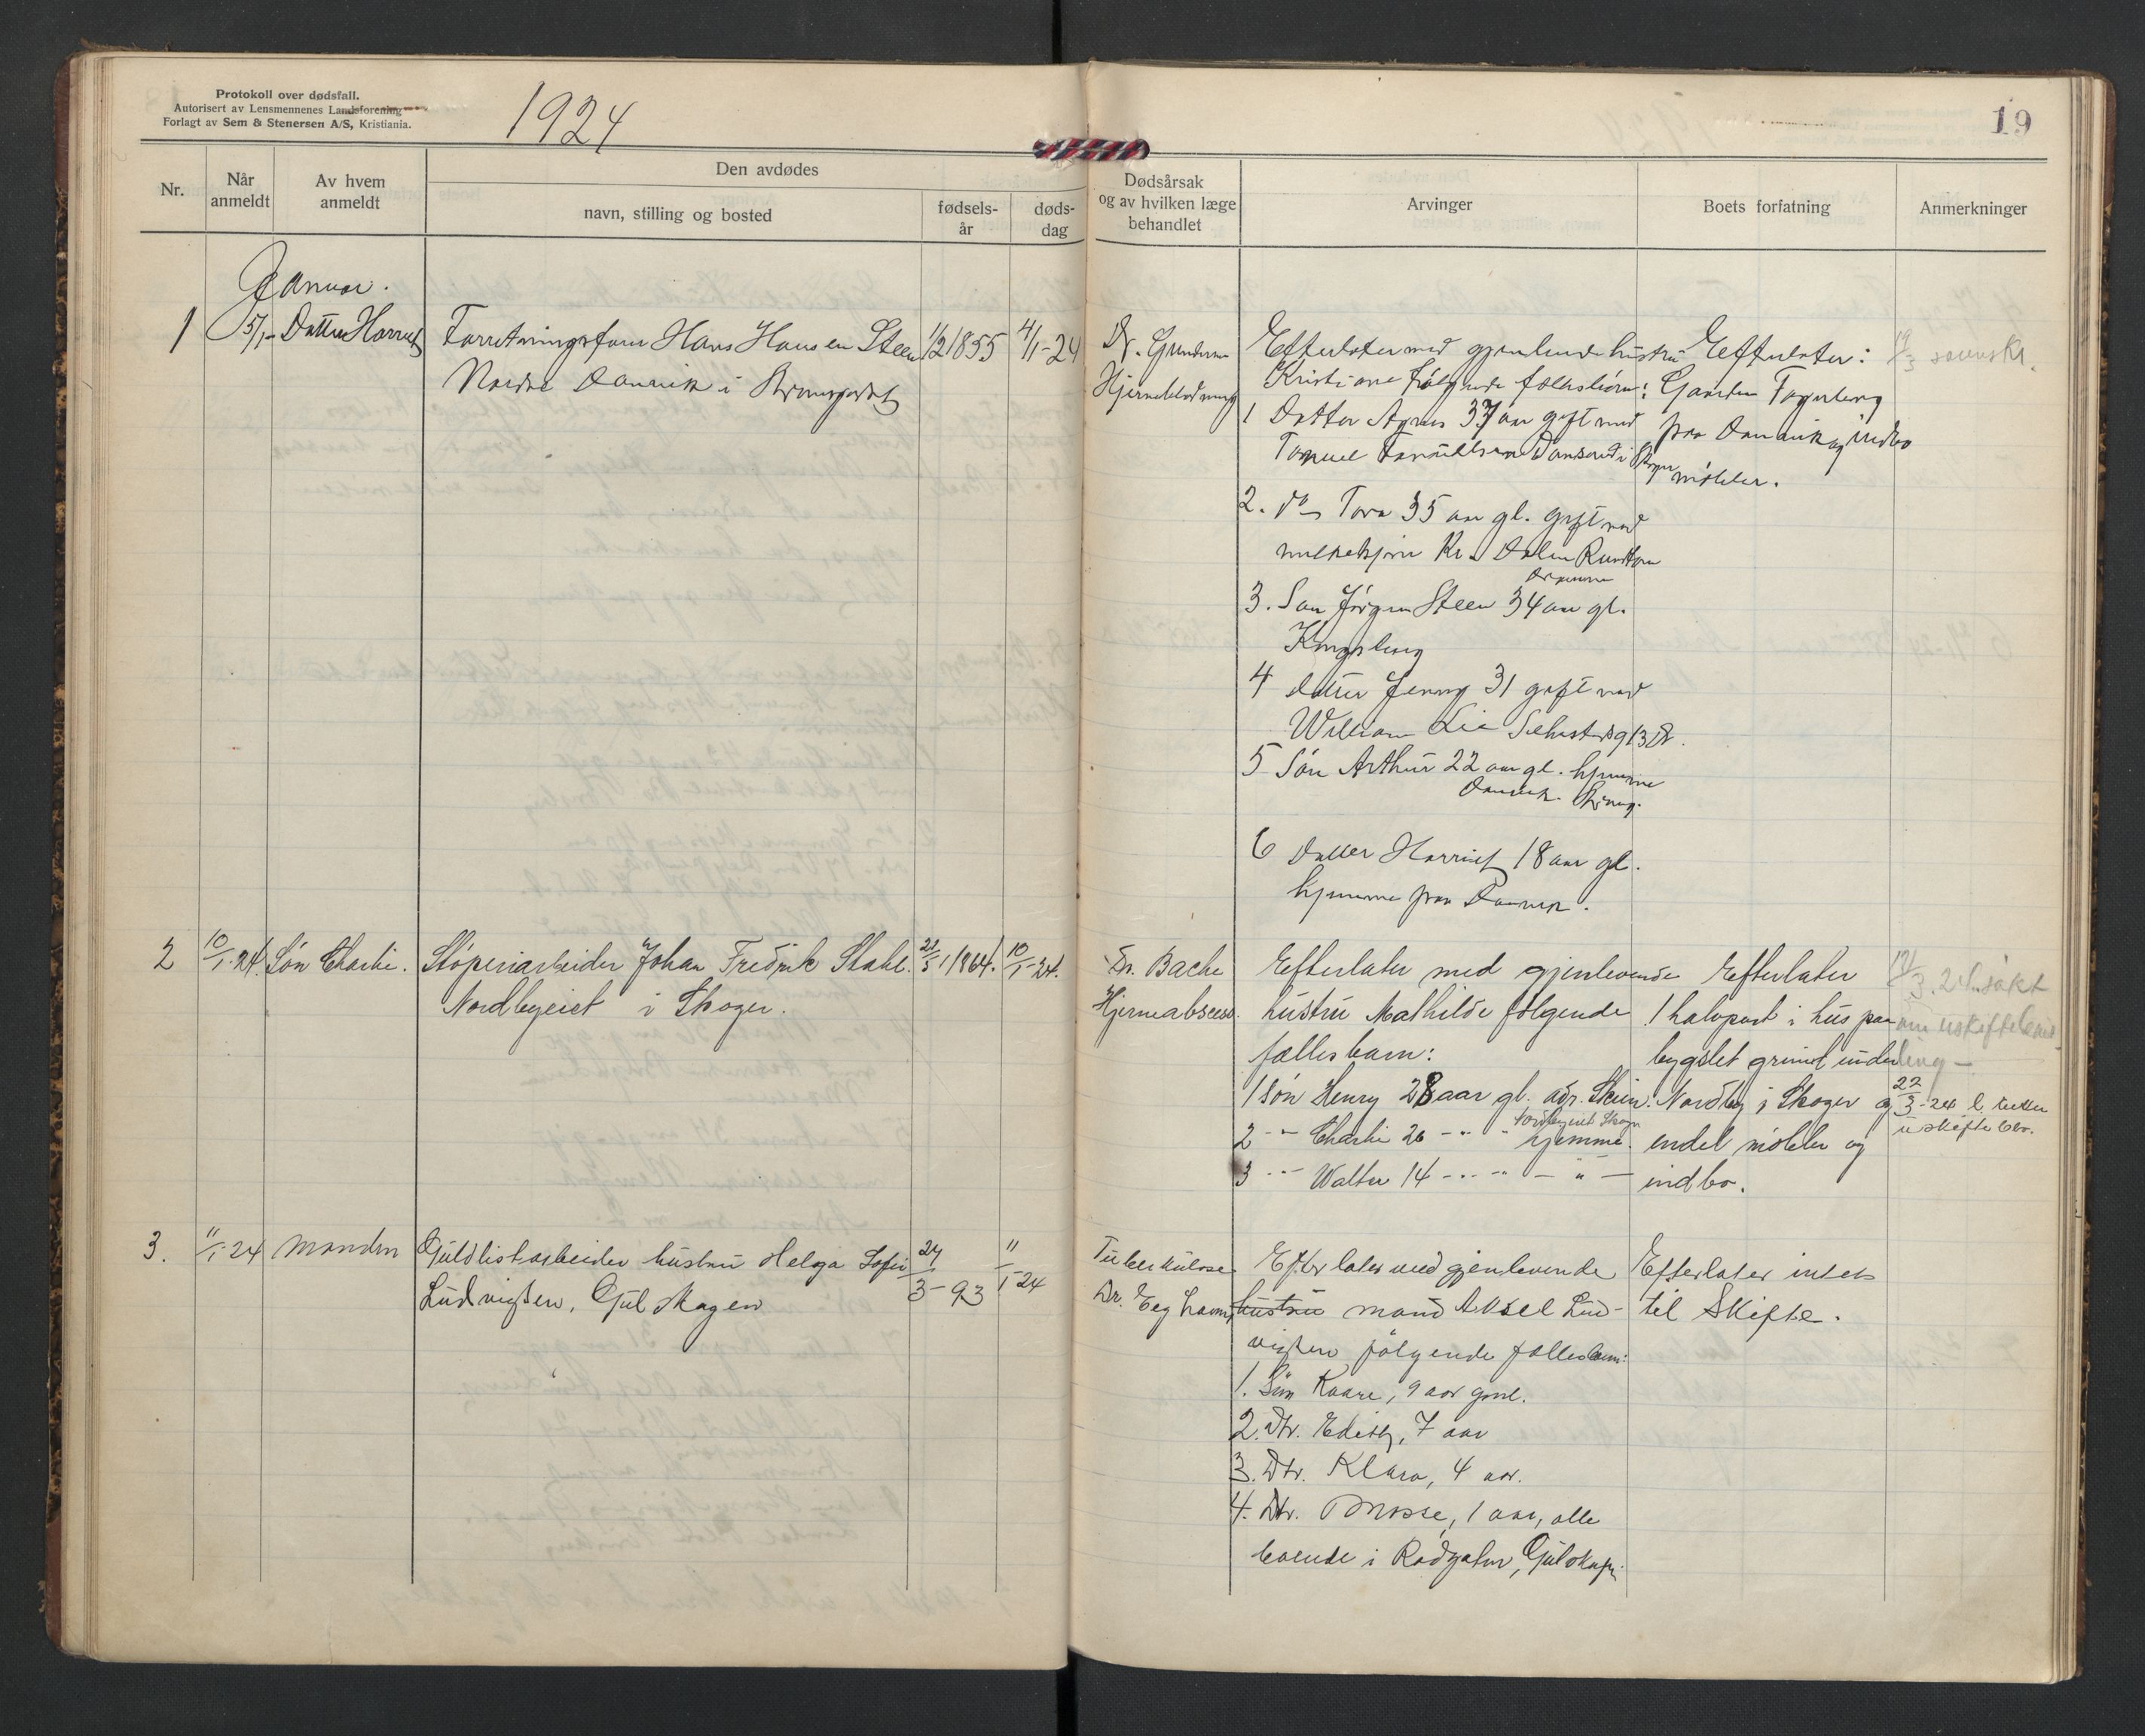 Protokoll over dødsfall.
Autorisert av Lensmennenes Landsforening
Forlagt av Sem & Stenersen A/S, Kristiania.
1924
19
Nr.
Når anmeldt
Av hvem anmeldt
Den avdødes
navn, stilling og bosted
fødsels-år
døds-dag
Dødsårsak og av hvilken læge behandlet
Arvinger
Boets forfatning
Anmerkninger
Januar.
1
5/1-
Datter Harriet
Forretningsfører Hans Hansen Steen
Nordre Danvik i
1/2 1855
4/1-24
Dr.
Hjerneblødning
Efterlater med gjenlevende hustru
Kristiane følgende fællesbørn:
1 Datter Agnes 37 aar gift med
2. do Tora 35 aar gl. gift med
Kr.
3. Søn Jørgen Steen 34 aar gl.
Kongsberg
4 datter Jenny 31 gift med
William Lie
5 Søn Arthur 22 aar gl. hjemme
Danvik
6 datter Harriet 18 aar gl.
hjemme paa Danvik.
Efterlater:
Gaarden Fagerberg
paa Danvik og indbo
møbler.
19/3
2
10/1-24.
Søn Charlie.
Støperiarbeider Johan Fredrik Stahl.
Nordbyeiet i Skoger.
1864.
10/1-24.
Dr. Bache
Hjerneabscess.
Efterlater med gjenlevende
hustru Mathilde følgende
fællesbarn:
1 søn Henry 28 aar gl. adr. Skien.
Nordbyeiet Skoger
2 -"- Charlie 26 -"- " hjemme.
3 -"- Walter 14 -"- " - " -
Efterlater
1 halvpart i hus paa
bygslet grund under
Nordby i Skoger og
endel møbler og
indbo.
3.24. søkt
om uskiftebevil-
ling -
22/3-24
uskifte bev.
3.
11/1-24
Manden
Guldlistarbeider hustru Helga Sofie
Ludvigsen, Gulskogen
24/3-93
11/1-24
Tuberkulose
Dr.
Efterlater med gjenlevende
hustru mand Aksel Lud-
vigsen følgende fællesbarn:
1. Søn Kaare, 9 aar gml.
2. Dtr. Edith, 7 aar
3. Dtr. Klara, 4 aar.
4. Dtr. Mosse, 1 aar, alle
boende i Rødgaten, Gulskogen
Efterlater intet
til Skifte.